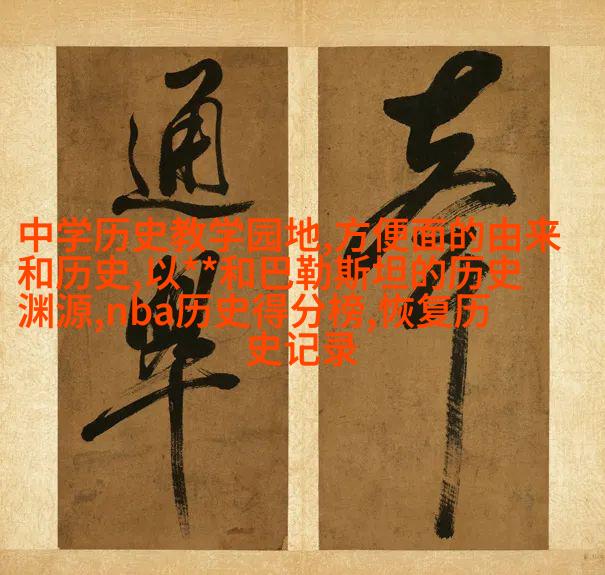 通
中学历史教学园地,方便面的由来
和历史,以**和巴勒斯坦的历史
渊源,nba历史得分榜,恢复历
史记录